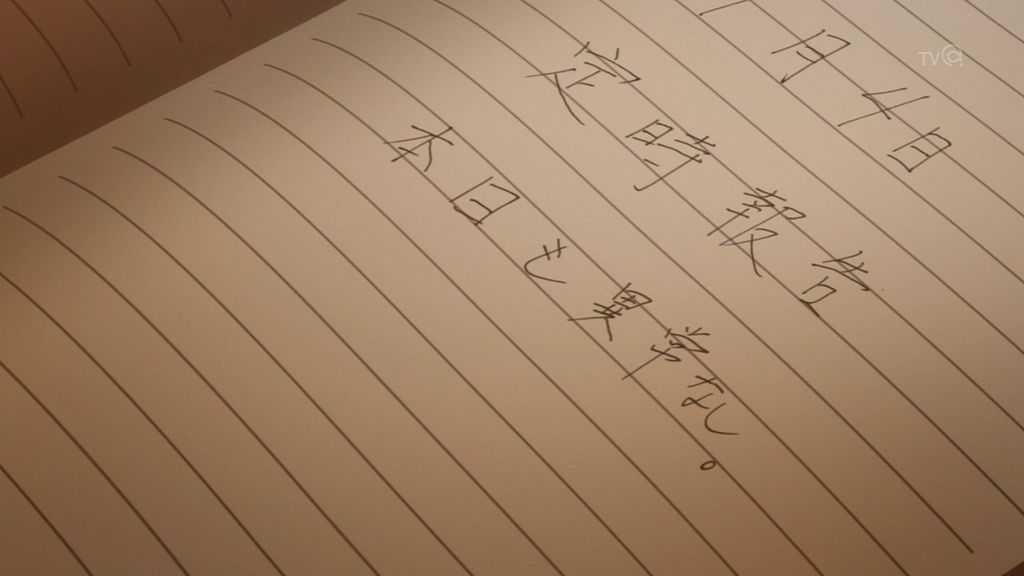 月4日
定時報告
本日も異常なし。
TVQ